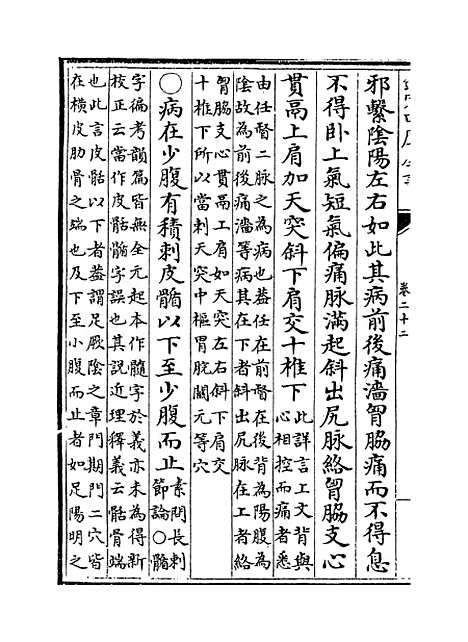 卷二十二
邪繫陰陽左右如此其病前後痛濇胷脇痛而不得息
不得卧上氣短氣偏痛脉滿起斜出尻脉絡胷脇支心
貫鬲上肩加天突斜下肩交十椎下
此詳言上文背與
心相控而痛者悉
由任督二脉之為病也蓋任在前督在後背為陽腹為
陰故為前後痛濇等病其在下者斜出尻脉在上者絡
胷脇支心貫鬲上肩加天突左右斜下肩交
十椎下所以當刺天突中樞胃脘關元等穴
○病在少腹有積刺皮䯏以下至少腹而止
素問長刺
節論○䯏
字徧考韻篇皆無全元起本作髓字於義亦未為得新
校正云當作皮骷髓字誤也其説近理釋義云骷骨端
也此言皮骷以下者蓋謂足厥陰之章門期門二穴皆
在横皮肋骨之端也及下至小腹而止者如足陽明之